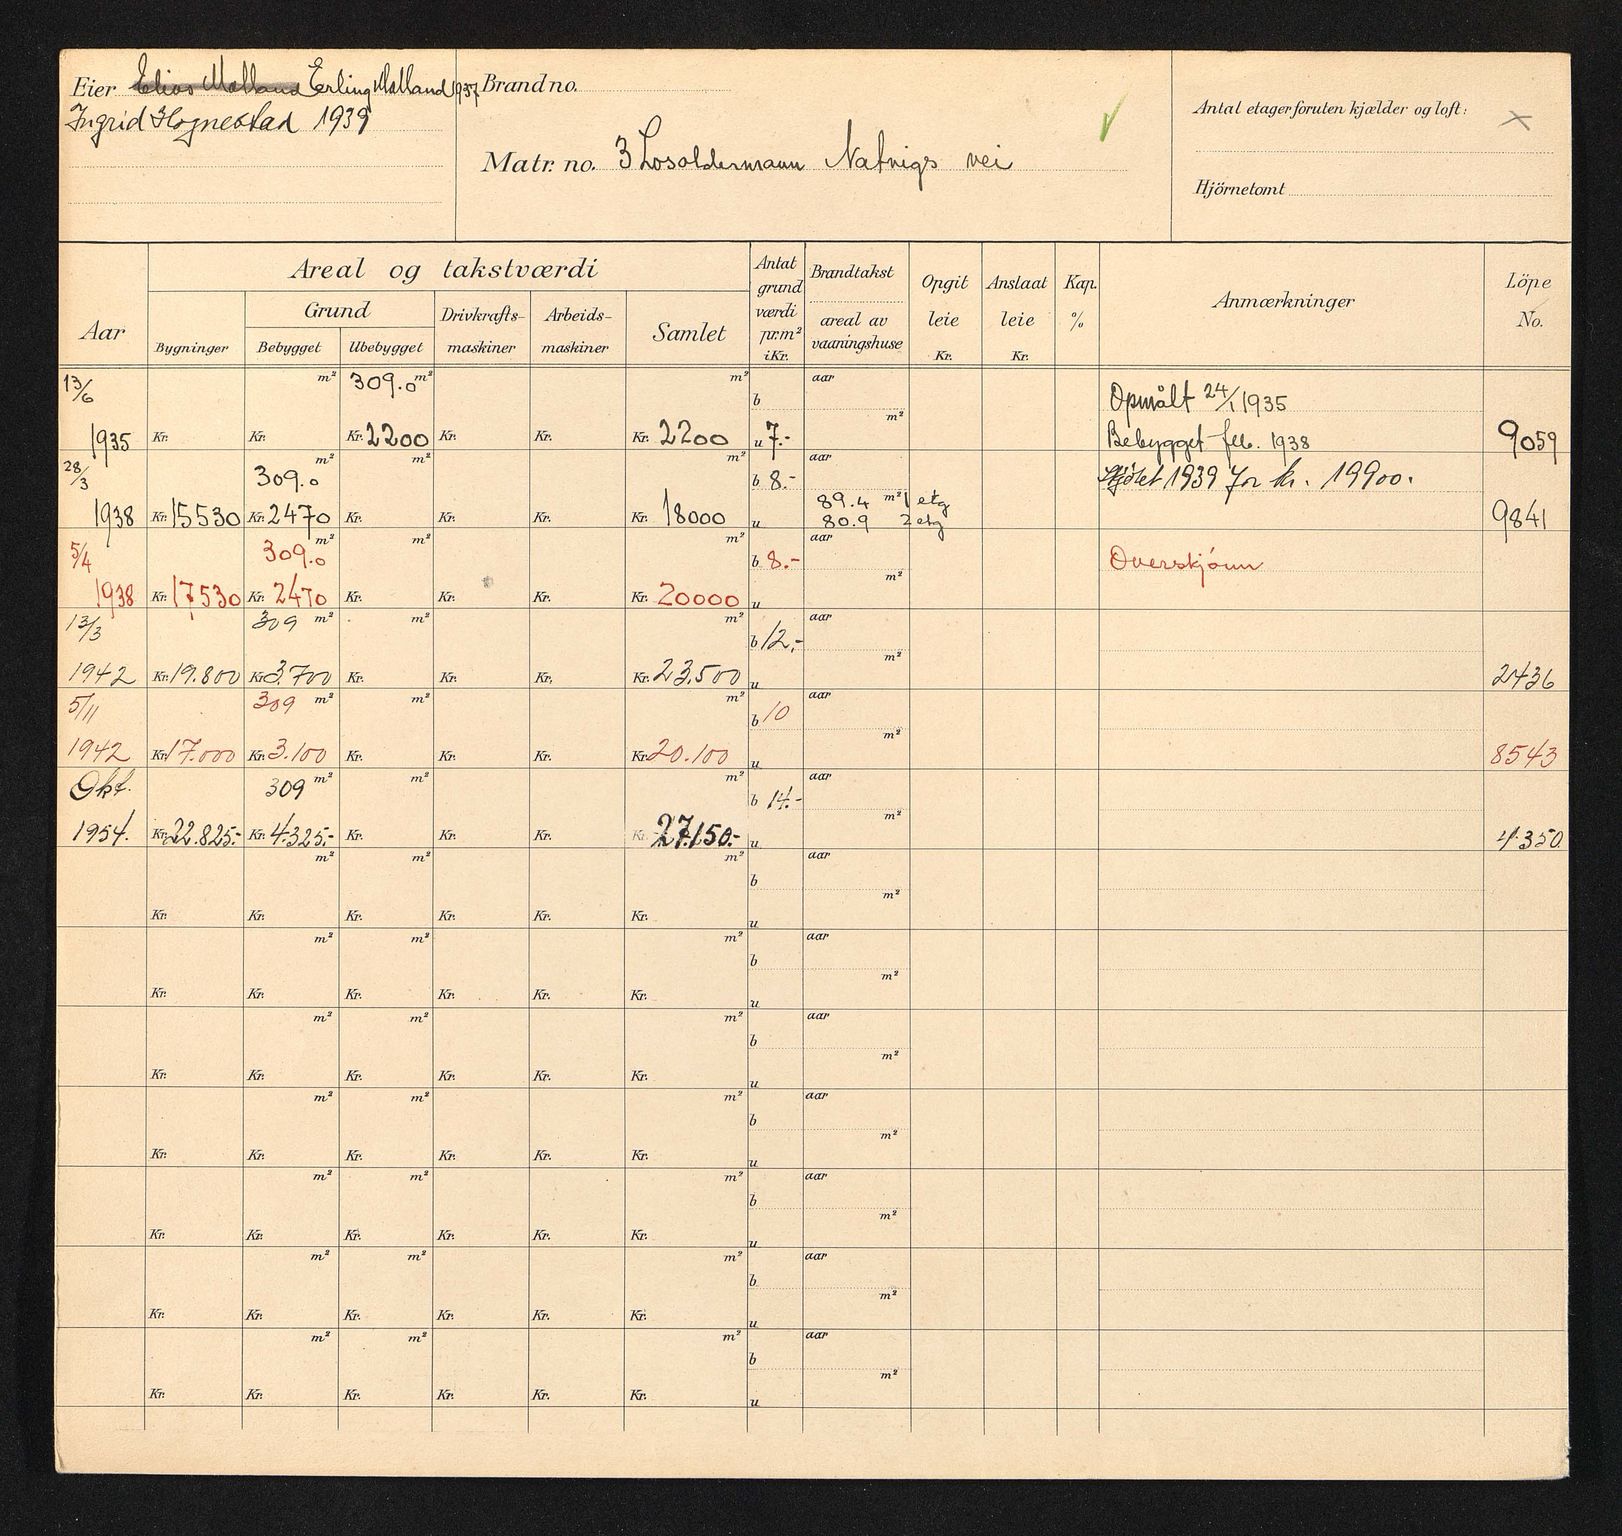 Eier Elias Malland Erling Malland 1937
Ingrid Hognestad 1939
Brand no.
Matr. no. 3 Losoldermann Natvigs vei
Antal etager foruten kjælder og loft: x
Hjörnetomt
Areal og takstværdi
Aar Bygninger Grund Bebygget Ubebygget Drivkrafts-maskiner Arbeids-maskiner Samlet
Antat grund værdi pr. m² i Kr.
Brandtakst areal av vaaningshuse
Opgit leie Kr.
Anslaat leie Kr.
Kap. %
Anmærkninger
Löpe No.
13/6 m² 309.0 m² m² b aar Opmålt 24/1 1935
1935 Kr. Kr. Kr. 2200 Kr. Kr. Kr. 2200 u 7.- m² Bebygget feb. 1938 9059
28/3 309.0 m² m² m² b 8.- aar Skjøtet 1939 for kr. 19900.
1938 Kr. 15530 Kr. 2470 Kr. Kr. Kr. Kr. 18000 u 89.4 m² 1 etg 80.9 2 etg 9841
5/4 309.0 m² m² m² b 8.- aar Overskjønn
1938 Kr. 17530 Kr. 2470 Kr. Kr. Kr. Kr. 20000 u m²
13/3 309 m² m² m² b 12,- aar
1942 Kr. 19.800 Kr. 3.700 Kr. Kr. Kr. Kr. 23,500 u m² 2436
5/11 309 m² m² m² b 10 aar
1942 Kr. 17.000 Kr. 3.100 Kr. Kr. Kr. Kr. 20.100 u m² 8543
Okt. 309 m² m² m² b 14.- aar
1954. Kr. 22.825.- Kr. 4.325.- Kr. Kr. Kr. Kr. 27.150.- u m² 4.350
m² m² m² b aar
Kr. Kr. Kr. Kr. Kr. Kr. u m²
m² m² m² b aar
Kr. Kr. Kr. Kr. Kr. Kr. u m²
m² m² m² b aar
Kr. Kr. Kr. Kr. Kr. Kr. u m²
m² m² m² b aar
Kr. Kr. Kr. Kr. Kr. Kr. u m²
m² m² m² b aar
Kr. Kr. Kr. Kr. Kr. Kr. u m²
m² m² m² b aar
Kr. Kr. Kr. Kr. Kr. Kr. u m²
m² m² m² b aar
Kr. Kr. Kr. Kr. Kr. Kr. u m²